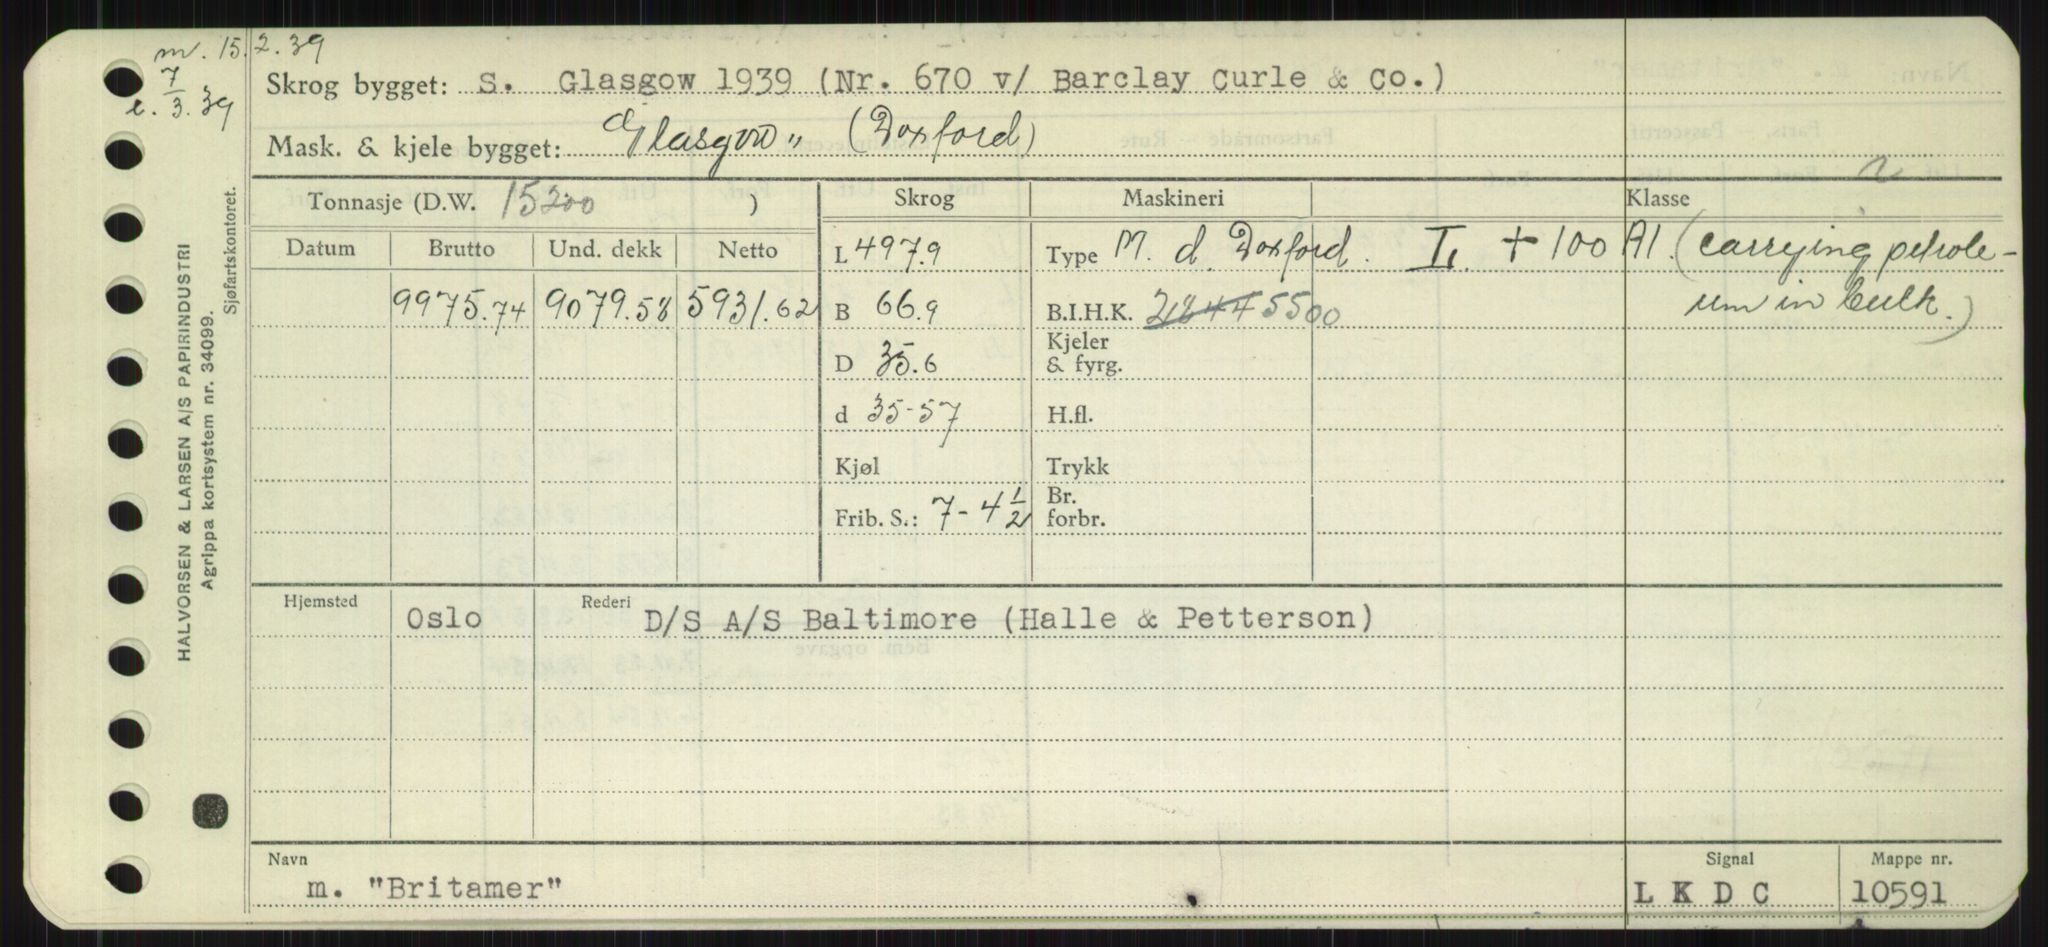 m. 15.2.39
e. 7/3.39
Skrog bygget: S. Glasgow 1939 (Nr. 670 v/ Barclay Curle & Co.)
Mask. & kjele bygget: Glasgow „ (Doxford)
Tonnasje (D.W. 15200 ) Skrog Maskineri Klasse
Datum Brutto Und. dekk Netto L 497.9 Type M. d. Doxford. + 100 A1. (carrying petrole-
9975.74 9079.58 5931.62 B 66.9 B.I.H.K. 2844 5500 um in bulk.)
D 35.6 Kjeler
& fyrg.
d 35-57 H.fl.
Kjøl Trykk
Frib. S.: 7-4 1/2 Br.
forbr.
Hjemsted Oslo Rederi D/S A/S Baltimore (Halle & Petterson)
Navn Signal Mappe nr.
m. "Britamer" L K D C 10591
HALVORSEN & LARSEN A/S PAPIRINDUSTRI
Agrippa kortsystem nr. 34099.
Sjøfartskontoret.